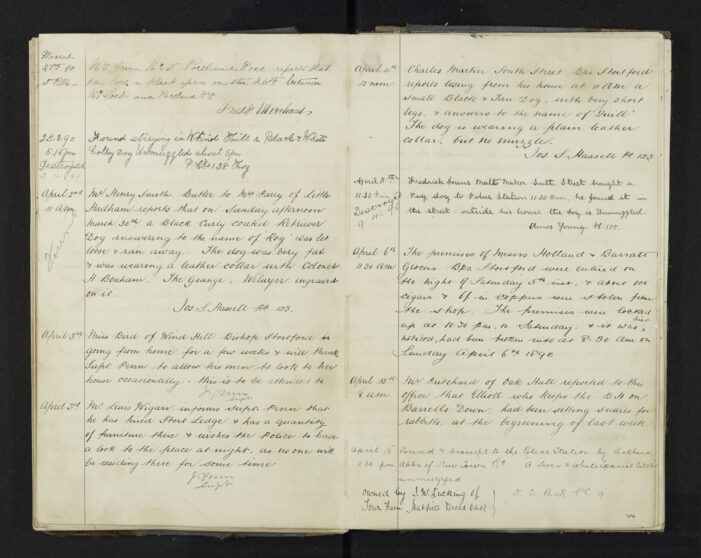 March
27th 90
Mr Green No 25 Portland Road reports that
a Black on the 26th between
and Portland Rd
Merchant
28.3.90
5.15 pm
Destroyed
2.4.90
Found straying in Wind Hill a Black & White
Colley Dog Unmuzzled about 5 pm
P.C. 135 Hoy
April 2nd
11 am
Found
Mr Henry Smith, Butler to Mrs Perry of Little
Hadham reports that on Sunday afternoon
March 30th a Black Curly coated Retriever
Dog answering to the name of 'Roy' was let
loose & ran away. The dog was very fat
& was wearing a leather collar with Colonel
H Bonham. The Grange. Welwyn engraved
on it.
Jos S Hassell Pc 123.
April 3rd
Miss Bird of Wind Hill Bishop Stortford is
going from home for a few weeks & will thank
Supt. Penn to allow his men to look to her
house occasionally - this is to be attended to
J Penn
Supt
April 3rd
Mr Lewis Wigan informs Supt. Penn that
he has hired Stort Lodge & has a quantity
of furniture there & wishes the Police to have
a look to the place at night, as no one will
be residing there for some time
J. Penn
Supt
April 4th
12 noon
Charles Martin South Street Bps Stortford
reports losing from his home at 11 am a
small Black & Tan Dog, with very short
legs. & answers to the name of 'Quill'
The dog is wearing a plain leather
collar, but no muzzle.
Jos S. Hassell Pc 123
April 5th
11.30 pm
Destroyed
9.4.90
Fredrick Downs Malt Maker South Street brought a
Pug dog to Police Station 11.30 pm, he found it in
the street outside his house the dog is Unmuzzled
Amos Young Pc 100.
April 6th
11.30 am
The premises of Messrs Holland & Barratt
Grocers Bps Stortford were entered on
the night of Saturday 5th inst, & about 100
cigars & 6/- in coppers were stolen from
the shop. The premises were locked
up at 10.30 p.m. on Saturday. & it was first
noticed, had been broken into at 8.30 am on
Sunday April 6th 1890
April 10th
8 am
Mr Pritchard of Oak Hall reported to this
office that Elliott who keeps the B.H on
Barrells Down had been setting snares for
rabbits at the beginning of last week
April
2.30 pm
Found & brought to the Police Station by Arthur
Abbs of New Town Rd A liver & white
unmuzzled
owned by J. W. Lucking of
Town Farm Hatfield Broad Oak
44